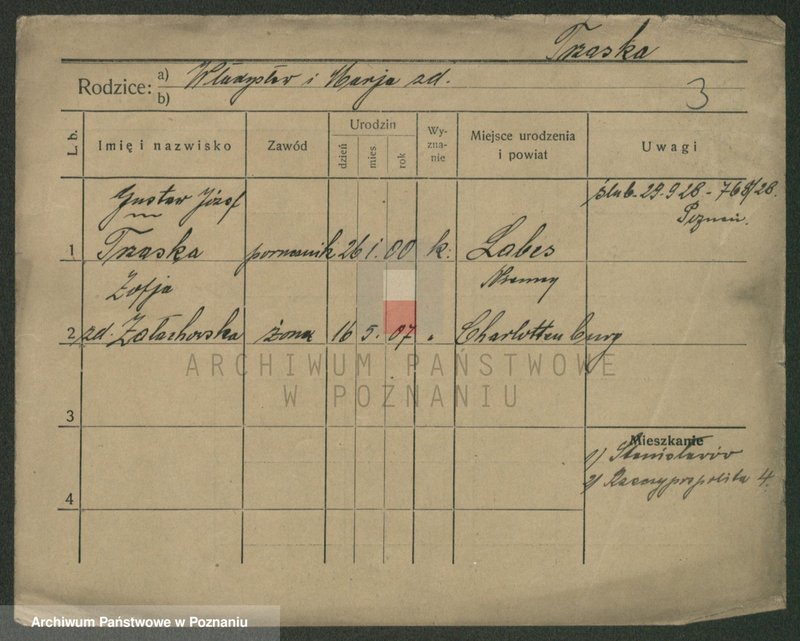 Trzaska
Rodzice: a) Władysław i Marja zd.
b)
3
L. b.
Imię i nazwisko
Zawód
Urodzin
dzień
mies
rok
Wy-
zna-
nie
Miejsce urodzenia
i powiat
Uwagi
Gustaw Józef
ślub 29.9.28 - 768/28
Poznań.
1 Trzaska 26 1. 00 k. Labes
Zofja
2 zd. żona 16 5. 07 " Charlottenburg
ARCHIWUM PAŃSTWOWE
W POZNANIU
3
Mieszkanie
1) Stanisławów
2) Rzeczypospolita 4.
4
Archiwum Państwowe w Poznaniu